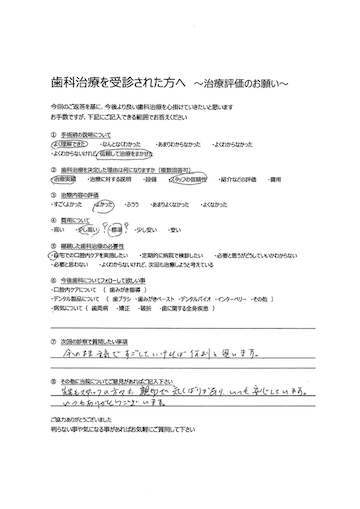 歯科治療を受診された方へ　～治療評価のお願い～
今回のご返答を基に、今後より良い歯科治療を心掛けていきたいと思います
お手数ですが、下記にご記入できる範囲でお答えください
① 手術前の説明について
・よく理解できた　・なんとなくわかった　・あまりわからなかった　・よくわからなかった
・よくわからないけれど、信頼して治療をまかせた
② 歯科治療を決定した理由は何になりますか（複数回答可）
・治療実績　・治療に対する説明　・設備　・スタッフの信頼性　・紹介などの評価　・費用
③ 治療内容の評価
・すごくよかった　・よかった　・ふつう　・あまりよくなかった　・よくなかった
④ 費用について
・高い　・少し高い　?　・標準　?　・少し安い　・安い
⑤ 継続した歯科治療の必要性
・自宅での口腔内ケアを実施したい　・定期的に病院で検診したい　・必要と思うがどうしていいかわからない
・必要と思わない　・よくわからないけれど、次回も治療しようと考えている
⑥ 今後歯科についてフォローして欲しい事
・口腔内ケアについて （ 歯みがき指導 ）
・デンタル製品について （ 歯ブラシ ・歯みがきペースト ・デンタルバイオ ・インターベリー ・その他 ）
・病気について（ 歯周病 ・矯正 ・破折 ・歯に関する全身疾患 ）
⑦ 次回の診察で質問したい事項
今のまま で すごしていければ 何より と 思います。
⑧ その他に当院についてご意見があればご記入下さい
スタッフの方々も 親切で いつも 安心しています。
いつもありがとうございます。
ご協力ありがとうございました
判らない事や気になる事があればお気軽にご質問して下さい